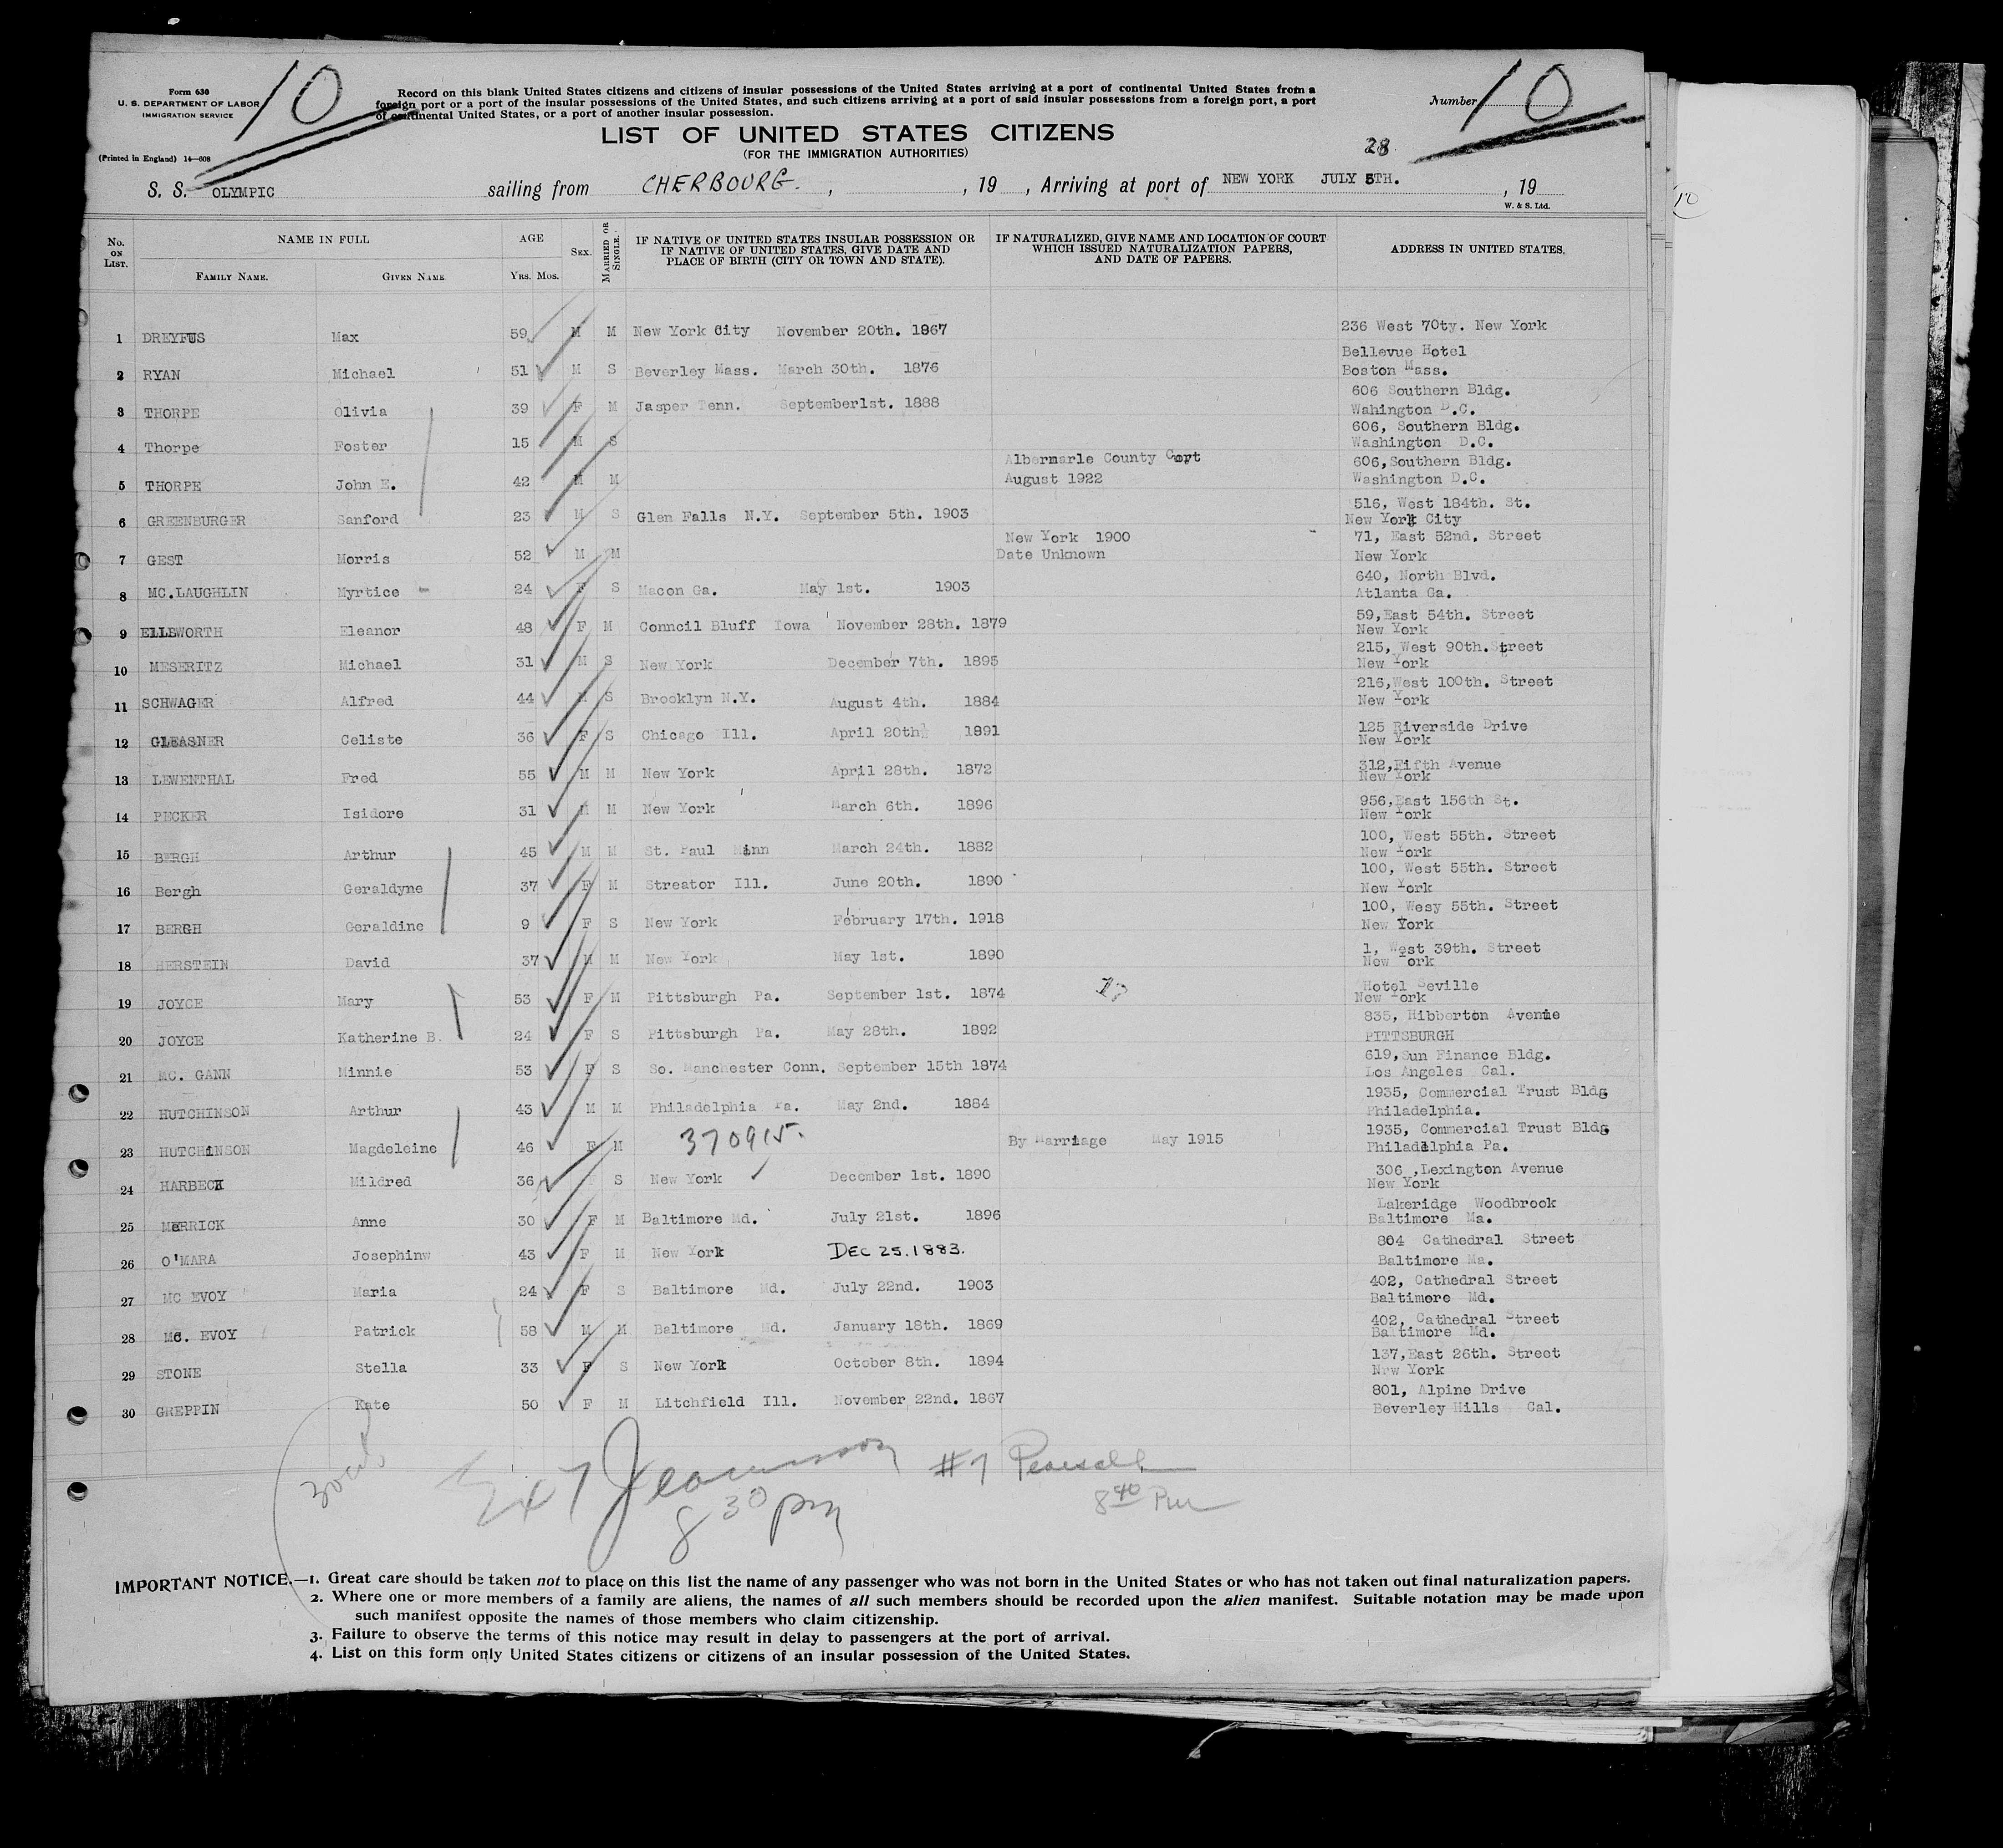 10
10
Form 630
U. S. DEPARTMENT OF LABOR
IMMIGRATION SERVICE
(Printed in England) 14—608
Record on this blank United States citizens and citizens of insular possessions of the United States arriving at a port of continental United States from a
foreign port or a port of the insular possessions of the United States, and such citizens arriving at a port of said insular possessions from a foreign port, a port
of continental United States, or a port of another insular possession.
Number
LIST OF UNITED STATES CITIZENS
(FOR THE IMMIGRATION AUTHORITIES)
28
S. S. OLYMPIC sailing from CHERBOURG. , , 19 , Arriving at port of NEW YORK JULY 5TH. , 19
W. & S. Ltd.
No. ON LIST. NAME IN FULL AGE SEX. MARRIED OR SINGLE. IF NATIVE OF UNITED STATES INSULAR POSSESSION OR IF NATIVE OF UNITED STATES, GIVE DATE AND PLACE OF BIRTH (CITY OR TOWN AND STATE). IF NATURALIZED, GIVE NAME AND LOCATION OF COURT WHICH ISSUED NATURALIZATION PAPERS, AND DATE OF PAPERS. ADDRESS IN UNITED STATES.
FAMILY NAME. GIVEN NAME YRS. MOS.
1 DREYFUS Max 59 M M New York City November 20th. 1867 236 West 70ty. New York
2 RYAN Michael 51 M S Beverley Mass. March 30th. 1876 Bellevue Hotel Boston Mass.
3 THORPE Olivia 39 F M Jasper Tenn. September1st. 1888 606 Southern Bldg. Wahington D.C.
4 Thorpe Foster 15 M S 606, Southern Bldg. Washington D.C.
5 THORPE John E. 42 M M Albermarle County August 1922 606,Southern Bldg. Washington D.C.
6 GREENBURGER Sanford 23 M S Glen Falls N.Y. September 5th. 1903 516, West 184th. St. New York City
7 GEST Morris 52 M M New York 1900 Date Unknown 71, East 52nd. Street New York
8 MC.LAUGHLIN Myrtice 24 F S Macon Ga. May 1st. 1903 640, North Blvd. Atlanta Ga.
9 ELLSWORTH Eleanor 48 F M Conncil Bluff Iowa November 28th. 1879 59,East 54th. Street New York
10 MESERITZ Michael 31 M S New York December 7th. 1895 215, West 90th.Street New York
11 SCHWAGER Alfred 44 M S Brooklyn N.Y. August 4th. 1884 216,West 100th. Street New York
12 GLEASNER Celiste 36 F S Chicago Ill. April 20th 1891 125 Riverside Drive New York
13 LEWENTHAL Fred 55 M M New York April 28th. 1872 312,Fifth Avenue New York
14 PECKER Isidore 31 M M New York March 6th. 1896 956,East 156th St. New York
15 BERGH Arthur 45 M M St. Paul Minn March 24th. 1882 100, West 55th. Street New York
16 Bergh Geraldyne 37 F M Streator Ill. June 20th. 1890 100, West 55th. Street New York
17 BERGH Geraldine 9 F S New York February 17th. 1918 100, Wesy 55th. Street New York
18 HERSTEIN David 37 M M New York May 1st. 1890 1, West 39th. Street New York
19 JOYCE Mary 53 F M Pittsburgh Pa. September 1st. 1874 Hotel Seville New York
20 JOYCE Katherine B. 24 F S Pittsburgh Pa. May 28th. 1892 835, Hibberton Avenue PITTSBURGH
21 MC. GANN Minnie 53 F S So. Manchester Conn. September 15th 1874 619,Sun Finance Bldg. Los Angeles Cal.
22 HUTCHINSON Arthur 43 M M Philadelphia Pa. May 2nd. 1884 1935, Commercial Trust Bldg Philadelphia.
23 HUTCHINSON Magdeleine 46 F M 370915. By Marriage May 1915 1935, Commercial Trust Bldg Philadelphia Pa.
24 HARBECK Mildred 36 F S New York December 1st. 1890 306 ,Lexington Avenue New York
25 MERRICK Anne 30 F M Baltimore Md. July 21st. 1896 Lakeridge Woodbrook Baltimore Ma.
26 O'MARA Josephinw 43 F M New York DEC 25.1883. 804 Cathedral Street Baltimore Ma.
27 MC EVOY Maria 24 F S Baltimore Md. July 22nd. 1903 402, Cathedral Street Baltimore Md.
28 MC. EVOY Patrick 58 M M Baltimore Md. January 18th. 1869 402, Cathedral Street Baltimore Md.
29 STONE Stella 33 F S New York October 8th. 1894 137,East 26th. Street Nrw York
30 GREPPIN Kate 50 F M Litchfield Ill. November 22nd. 1867 801, Alpine Drive Beverley Hills Cal.
#7
8 30 pm
8 40 Pm
IMPORTANT NOTICE.—1. Great care should be taken not to place on this list the name of any passenger who was not born in the United States or who has not taken out final naturalization papers.
2. Where one or more members of a family are aliens, the names of all such members should be recorded upon the alien manifest. Suitable notation may be made upon
such manifest opposite the names of those members who claim citizenship.
3. Failure to observe the terms of this notice may result in delay to passengers at the port of arrival.
4. List on this form only United States citizens or citizens of an insular possession of the United States.